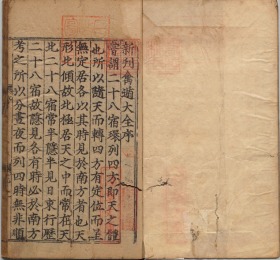 新刊禽遁大全序
嘗謂二十八宿環列四方即天之體
也所以隨天而轉四方有定位而星
無定居各以其時見於南方者也天
形北傾故北極居天之中而常在天
北二十八宿常半隱半見日東行歷
二十八宿故隱見各有時必於南方
考之所以分晝夜而列四時無非順